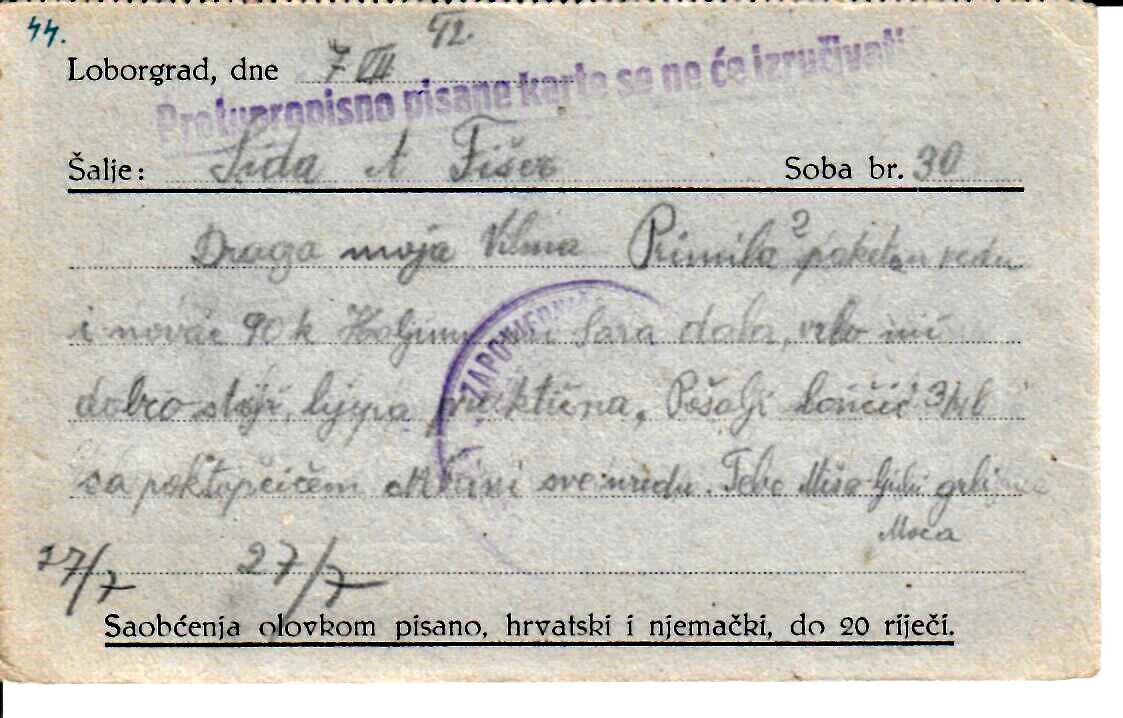 44.
42.
Loborgrad, dne 7 VII
Protupropisno pisane karte se ne će izručivati
Šalje: Sida A Fišer Soba br. 30
Draga moja Vilma Primila 2 paketa u redu
i novac 90 k Haljinu mi Sara dala, vrlo mi
dobro stoji, lijepa praktična, Pošalji lončić
sa poklopčićem sve u redu. Tebe Miša ljubi
ZAPOVJEDNI
27/7 27/7
Saobćenja olovkom pisano, hrvatski i njemački, do 20 riječi.